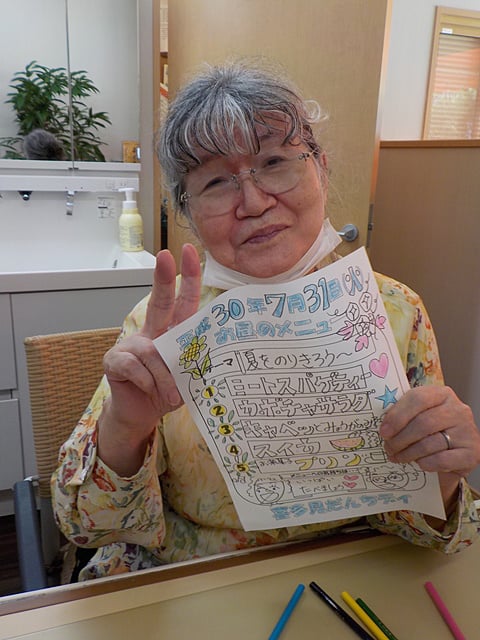 平成30年7月31日(火)
お昼のメニュー
〜夏をのりきろう〜
1 ミートスパゲティ
2 カボチャサラダ
3 キャベツとみょうが
4 スイカ
5
たべましょう
喜多見だんらんデイ